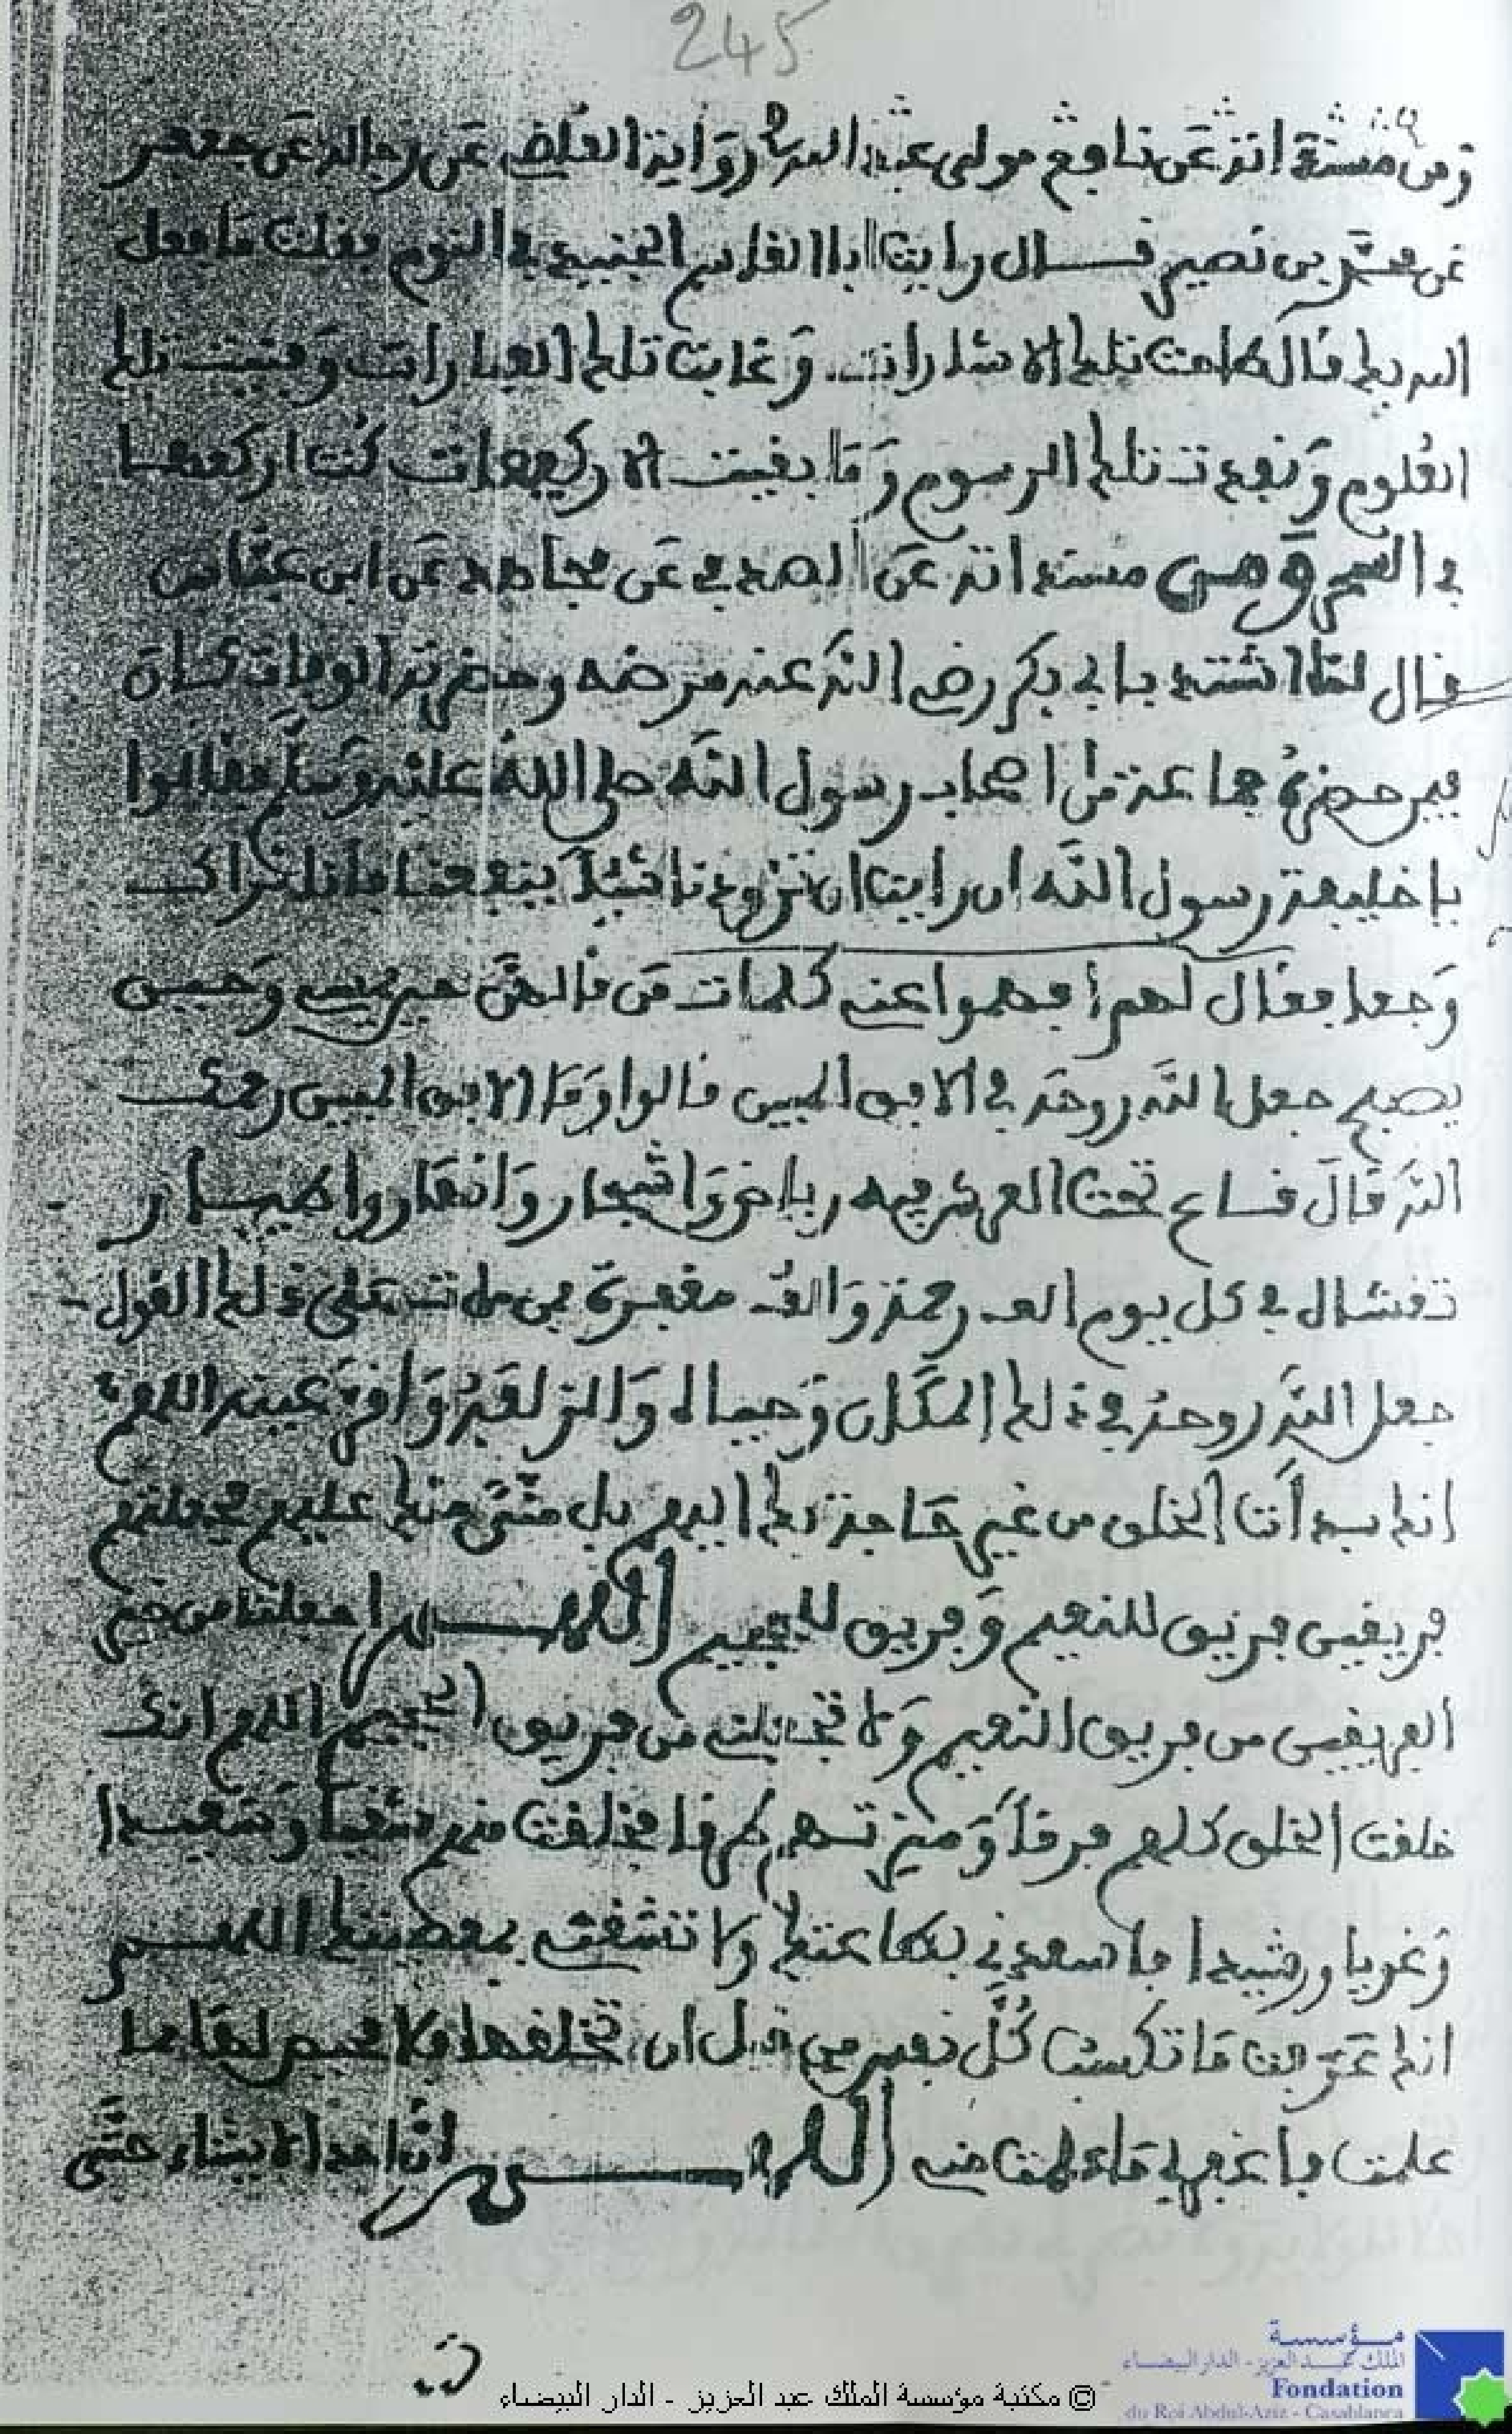 245
ومن مسنداته عن نافع مولى عبد الله رواية عن رجاله عن جعفر
بن نصير قال رايت ابا القاسم الجنيد في النوم فقلت ما فعل
الله بك قال طاحت تلك الاشارات وغابت تلك العبارات وفنيت تلك
العلوم ونفدت تلك الرسوم وما بقيت الا ركيعات كنت اركعها
في السحر ومن مسنداته عن عن مجاهد عن ابن عباس
قال لما اشتد بابي بكر رضي الله عنه مرضه وحضرته الوفات كان
حضره جماعة من اصحاب رسول الله صلى الله عليه وسلم فقالوا
يا خليفة رسول الله ان رايت ان تزودنا شيئا ينفعنا فانا نراك
وجعا فقال لهم افهموا عني كلمات من قالهن حين يمسي وحين
يصبح جعل الله روحه في الافق المبين قالوا وما الافق المبين رحمك
الله قال قساع تحت العرش فيه رياض واشجار وانهار واطيار
تغشاه في كل يوم الف رحمة والف مغفرة فمن مات على ذلك القول
جعل الله روحه في ذلك المكان اللهم
انك بدأت الخلق من غير حاجة بك اليهم بل منا منك عليهم فجعلتهم
فريقين فريق للنعيم وفريق للجحيم اللهم اجعلنا من خير
الفريقين من فريق النعيم ولا تجعلني من فريق الجحيم اللهم انك
خلقت الخلق كلهم فرقا وميزتهم فخلقت منهم شقيا وسعيدا
وغويا ورشيدا فاسعدني بطاعتك ولا تشقني بمعصيتك اللهم
انك عرفت ما تكسب كل نفس من قبل ان تخلقها فلا محيص لها مما
علمت فاغفر لي ما علمت مني اللهم ان احدا لا يشاء حتى
© مكتبة مؤسسة الملك عبد العزيز - الدار البيضاء
مؤسسة
الملك عبد العزيز - الدار البيضاء
Fondation
du Roi Abdul-Aziz - Casablanca